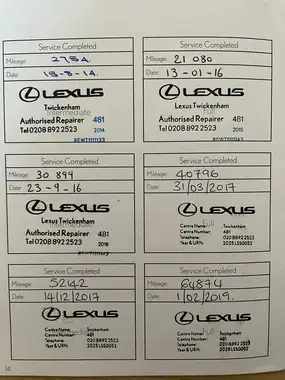 Service Completed
Mileage:
Date: 18-8-14.
LEXUS
Twickenham
Intermediate
Authorised Repairer 481
Tel 0208 892 2523 2014
Service Completed
Mileage: 21 080
Date: 13-01-16
LEXUS
Lexus Twickenham
Full
Authorised Repairer 481
Tel 0208 892 2523 2015
Service Completed
Mileage: 30 899
Date: 23-9-16
LEXUS
Lexus Twickenham
Intermediate
Authorised Repairer 481
Tel 0208 892 2523
Service Completed
Mileage: 40796
Date: 31/03/2017
LEXUS
Full
Centre Name: Twickenham
Centre Number: 481
Telephone: 020 8892 2523
Year & URN:
Service Completed
Mileage: 52142
Date: 14/12/2017
LEXUS
Centre Name: Twickenham
Intermediate
Centre Number: 481
Telephone: 020 8892 2523
Year & URN:
Service Completed
Mileage: 64874
Date: 1/02/2019.
LEXUS
Centre Name: Twickenham
Full
Centre Number: 481
Telephone: 020 8892 2523
Year & URN:
14